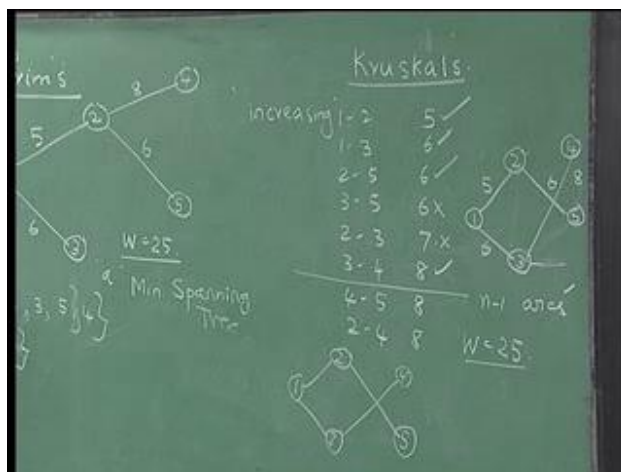 rim's
8
4
2
5
6
5
6
3
W=25
a
Min Spanning
Tree
, 3, 5} {4}
}
Kruskals.
increasing 1-2 5 ✓
1-3 6 ✓
2-5 6 ✓
3-5 6 x
2-3 7 x
3-4 8 ✓
4-5 8
2-4 8
n-1 arcs
W=25.
2
4
5
6
8
1
5
6
3
1
2
4
5